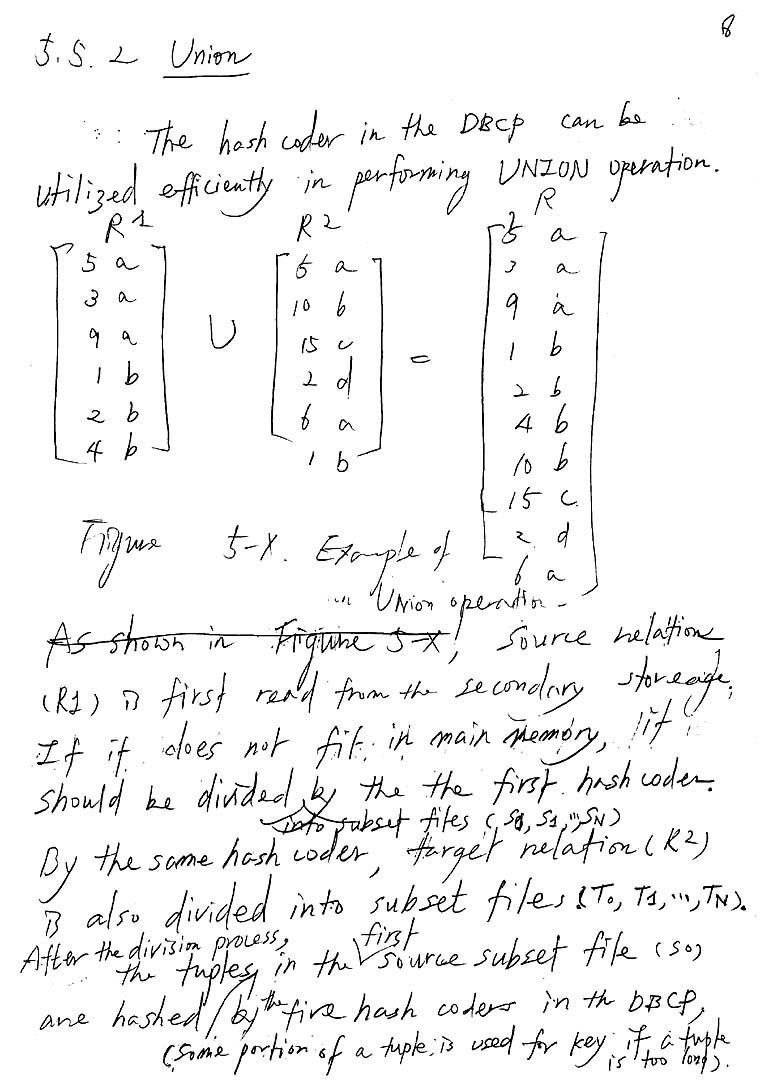 8
5.5.2 Union
The hash coder in the DBCP can be
utilized efficiently in performing UNION operation.
R1 R2 R
5 a
3 a
9 a
1 b
2 b
4 b
U
5 a
10 b
15 c
2 d
6 a
1 b
=
5 a
3 a
9 a
1 b
2 b
4 b
10 b
15 c
2 d
6 a
Figure 5-X. Example of
Union operation
As shown in Figure 5-X, source relation
(R1) is first read from the secondary storeage.
If it does not fit in main memory, it
should be divided by the the first hash coder.
into subset files (S0, S1, ..., SN)
By the same hash coder, target relation (R2)
is also divided into subset files (T0, T1, ..., TN).
After the division process, first
the tuples in the source subset file (S0)
are hashed by the five hash coders in th DBCP,
(some portion of a tuple is used for key if a tuple
is too long).